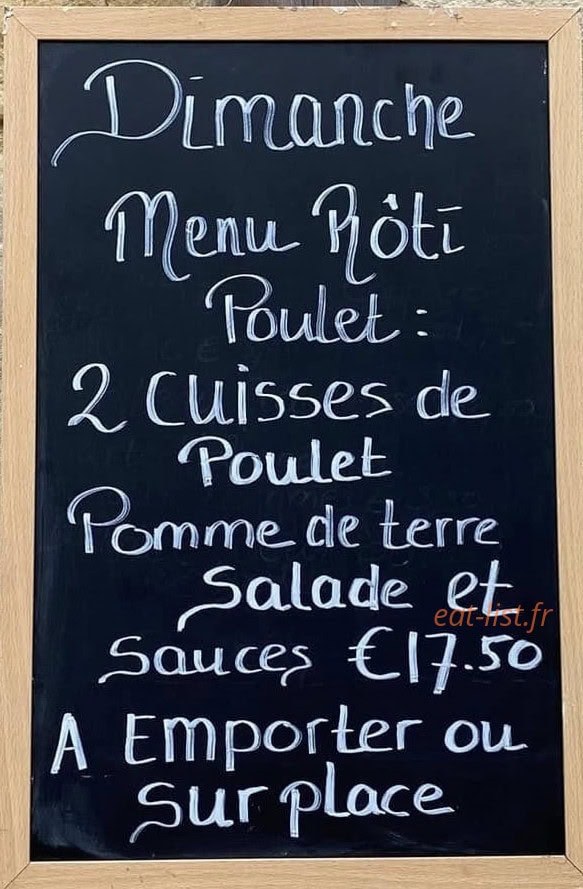 Dimanche
Menu Rôti
Poulet :
2 cuisses de
Poulet
Pomme de terre
Salade et
eat-list.fr
Sauces €17.50
A Emporter ou
sur place